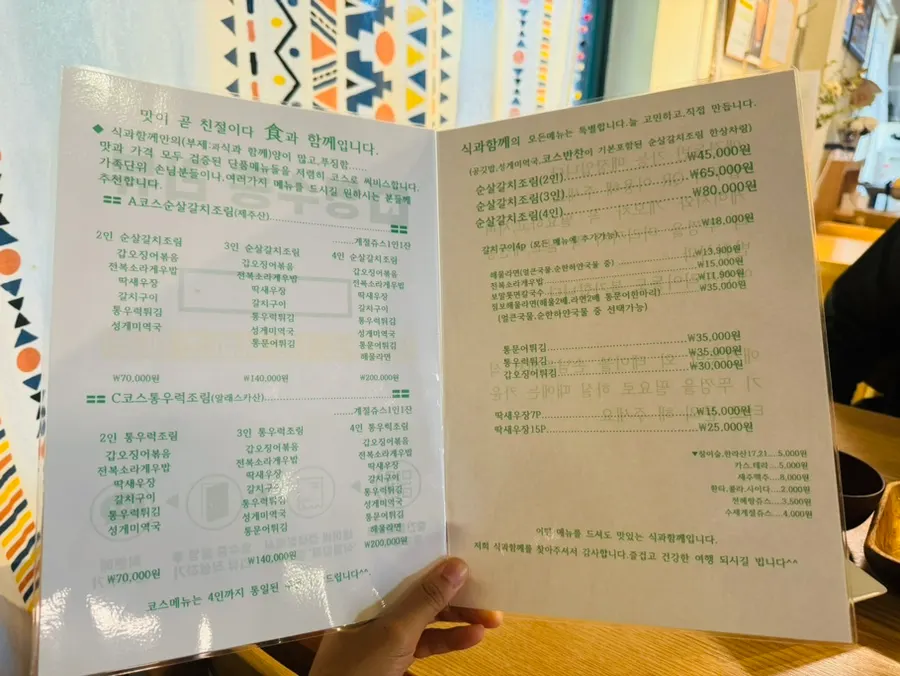 맛이 곧 친절이다 食과 함께입니다.
◆ 식과함께만의(부제:과식과 함께)양이 많고,푸짐함
맛과 가격 모두 검증된 단품메뉴들을 저렴히 코스로 써비스합니다.
가족단위 손님분들이나,여러가지 메뉴를 드시길 원하시는 분들께
추천합니다.
A코스순살갈치조림(제주산)
계절쥬스1인1잔
2인 순살갈치조림
갑오징어볶음
전복소라게우밥
딱새우장
갈치구이
통우럭튀김
성게미역국
₩70,000원
3인 순살갈치조림
갑오징어볶음
전복소라게우밥
딱새우장
갈치구이
통우럭튀김
성게미역국
통문어튀김
₩140,000원
4인 순살갈치조림
갑오징어볶음
전복소라게우밥
딱새우장
갈치구이
통우럭튀김
성게미역국
통문어튀김
해물라면
₩200,000원
C코스통우럭조림(알래스카산)
계절쥬스1인1잔
2인 통우럭조림
갑오징어볶음
전복소라게우밥
딱새우장
갈치구이
통우럭튀김
성게미역국
₩70,000원
3인 통우럭조림
갑오징어볶음
전복소라게우밥
딱새우장
갈치구이
통우럭튀김
성게미역국
통문어튀김
₩140,000원
4인 통우럭조림
갑오징어볶음
전복소라게우밥
딱새우장
갈치구이
통우럭튀김
성게미역국
통문어튀김
해물라면
₩200,000원
코스메뉴는 4인까지 통일된 드립니다^^
식과함께의 모든메뉴는 특별합니다.늘 고민하고,직접 만듭니다.
(공깃밥,성게미역국,코스반찬이 기본포함된 순살갈치조림 한상차림)
순살갈치조림(2인) ₩45,000원
순살갈치조림(3인) ₩65,000원
순살갈치조림(4인) ₩80,000원
갈치구이4p (모든 메뉴에 추가가능) ₩18,000원
해물라면(얼큰국물,순한하얀국물 중) ₩13,900원
전복소라게우밥 ₩15,000원
보말톳면칼국수 ₩11,900원
점보해물라면(해물2배,라면2배 통문어한마리) ₩35,000원
(얼큰국물,순한하얀국물 중 선택가능)
통문어튀김 ₩35,000원
통우럭튀김 ₩35,000원
갑오징어튀김 ₩30,000원
딱새우장7P ₩15,000원
딱새우장15P ₩25,000원
▼참이슬,한라산17,21....5,000원
카스,테라....5,000원
제주맥주....8,000원
환타,콜라,사이다....2,000원
천혜향쥬스....3,500원
수제계절쥬스....4,000원
어떤 메뉴를 드셔도 맛있는 식과함께입니다.
저희 식과함께를 찾아주셔서 감사합니다.즐겁고 건강한 여행 되시길 빕니다^^